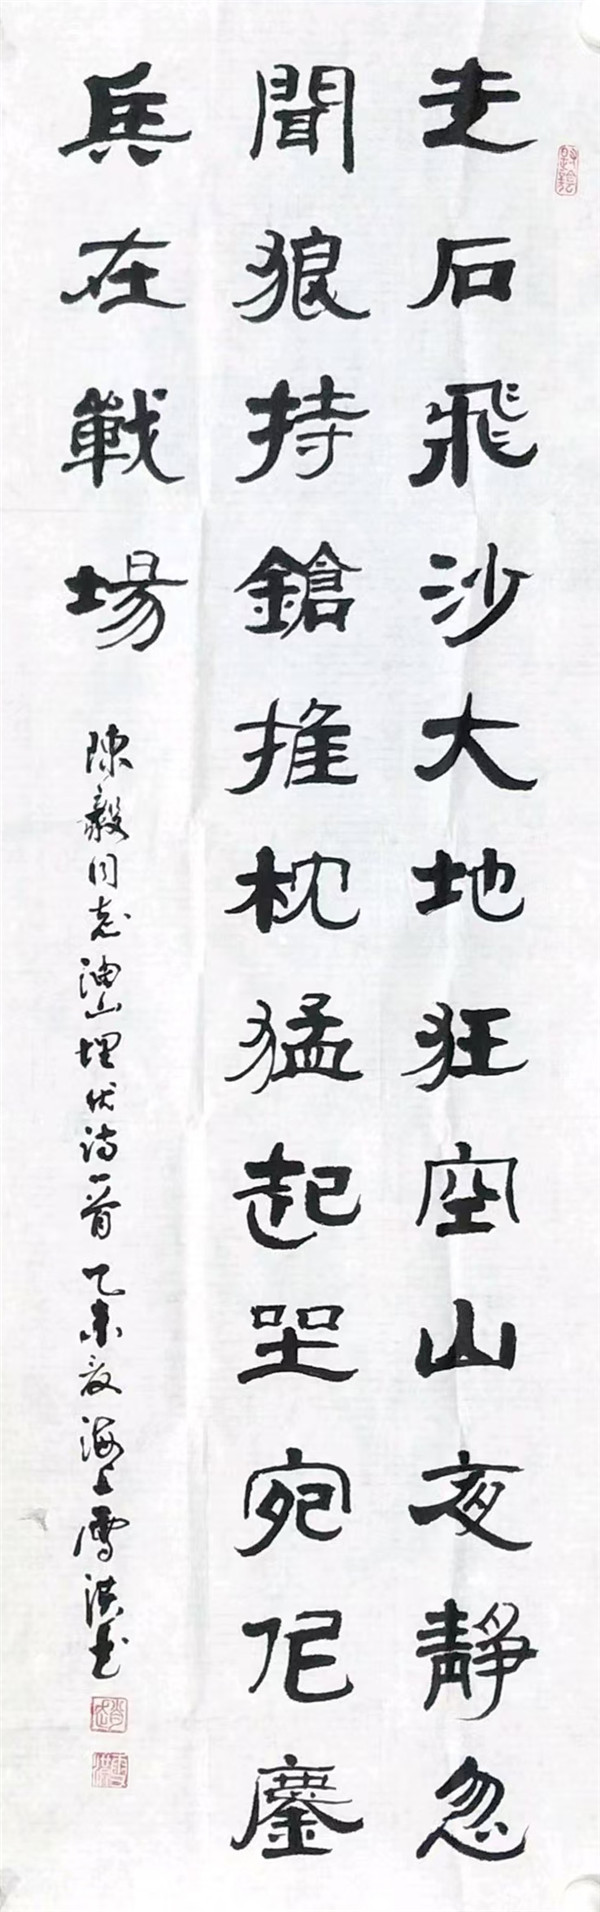 走石飛沙大地狂空山夜靜忽
聞狼持鎗推枕猛起坐宛作鏖
兵在戰場
陳毅同志油山埋伏詩一首乙未夏海上雪洪書
雪洪